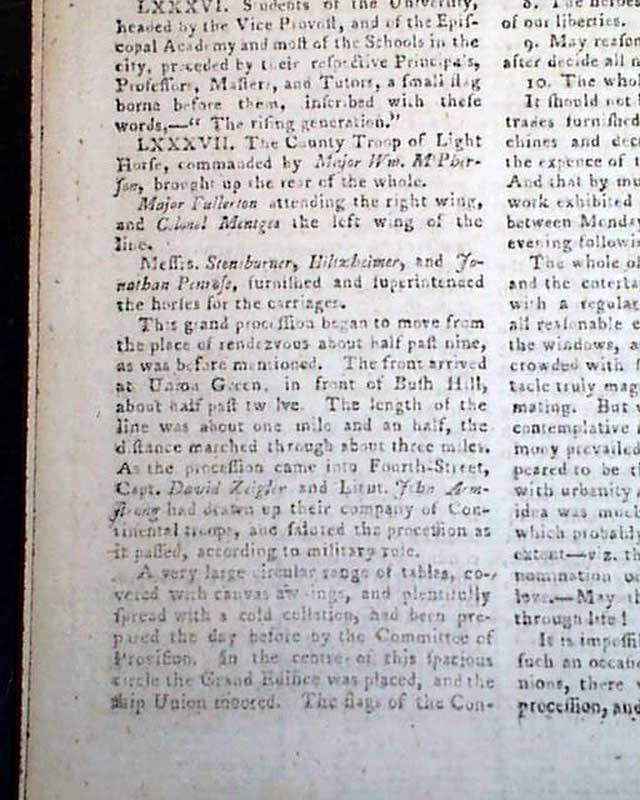 LXXXVI. Students of the University,
headed by the Vice Provost, and of the Epis-
copal Academy and most of the Schools in the
city, preceded by their respective Principals,
Professors, Masters, and Tutors, a small flag
borne before them, inscribed with these
words,—“ The rising generation.”
LXXXVII. The County Troop of Light
Horse, commanded by Major Wm. M'Pher-
son, brought up the rear of the whole.
Major Fullerton attending the right wing,
and Colonel Mentges the left wing of the
line.
Messrs. Stoneburner, Hiltzheimer, and Jo-
nathan Penrose, furnished and superintended
the horses for the carriages.
This grand procession began to move from
the place of rendezvous about half past nine,
as was before mentioned. The front arrived
at Union Green, in front of Bush Hill,
about half past twelve. The length of the
line was about one mile and an half, the
distance marched through about three miles.
As the procession came into Fourth-Street,
Capt. David Zeigler and Lieut. John Arm-
strong had drawn up their company of Con-
tinental troops, and saluted the procession as
it passed, according to military rule.
A very large circular range of tables, co-
vered with canvas awnings, and plentifully
spread with a cold collation, had been pre-
pared the day before by the Committee of
Provision. In the centre of this spacious
circle the Grand Edifice was placed, and the
ship Union moored. The flags of the Con-
8. The heroes
of our liberties.
9. May reason
after decide all n
10. The whol
It should not
trades furnished
chines and deco
the expence of t
And that by mu
work exhibited
between Monday
evening followin
The whole of
and the enterta
with a regular
all reasonable e
the windows, a
crowded with s
tacle truly mag
mating. But
contemplative
mony prevailed
peared to be t
with urbanity
idea was much
which probably
extent—viz. th
nomination o
love.—May th
through life!
It is impossi
such an occasi
nions, there
procession, and